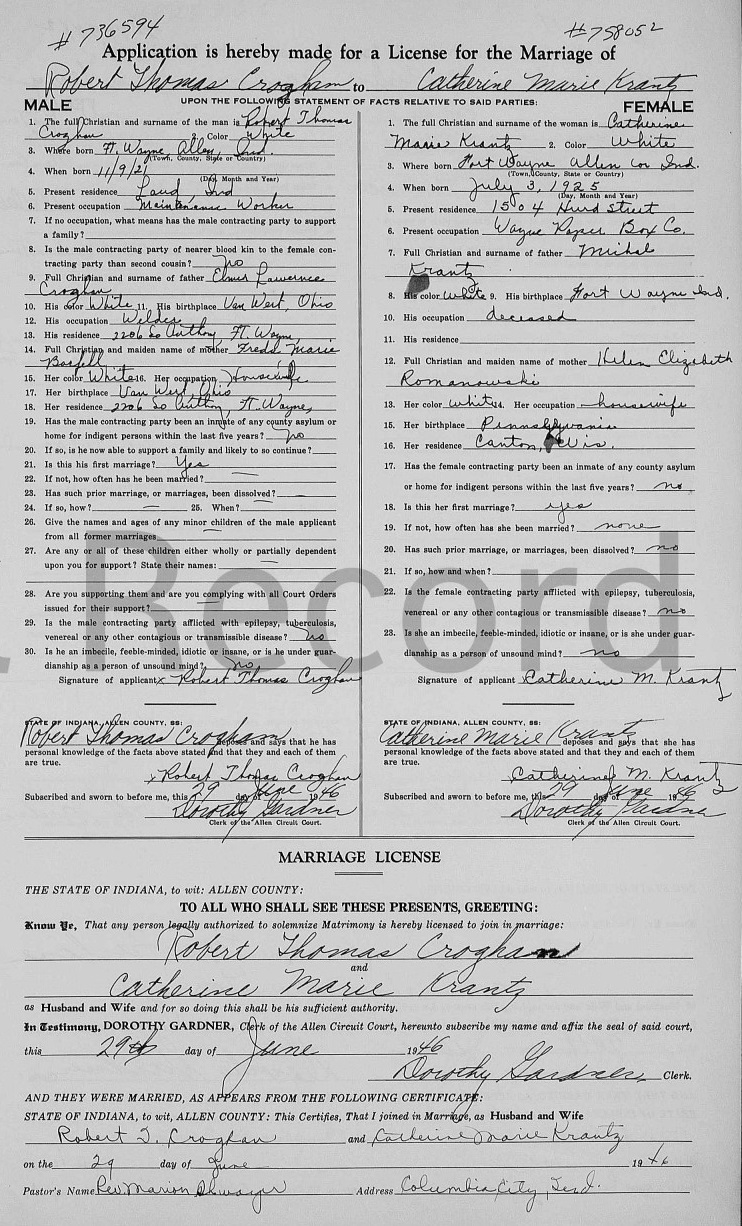 # 736594
# 758052
Application is hereby made for a License for the Marriage of
Robert Thomas Crogham to Catherine Marie Krantz
UPON THE FOLLOWING STATEMENT OF FACTS RELATIVE TO SAID PARTIES:
MALE
1. The full Christian and surname of the man is Robert Thomas
Croghan 2. Color White
3. Where born Ft. Wayne Allen, Ind.
(Town, County, State or Country)
4. When born 11/9/21
(Day, Month and Year)
5. Present residence Laud, Ind
6. Present occupation Maintenance Worker
7. If no occupation, what means has the male contracting party to support
a family?
8. Is the male contracting party of nearer blood kin to the female con-
tracting party than second cousin? no
9. Full Christian and surname of father Elmer Lawrence
Croghan
10. His color White 11. His birthplace Van Wert, Ohio
12. His occupation Welder
13. His residence 2206 So Anthony Ft. Wayne,
14. Full Christian and maiden name of mother Freda Marie
15. Her color White 16. Her occupation Housewife
17. Her birthplace Van Wert, Ohio
18. Her residence 2206 So Anthony, Ft. Wayne,
19. Has the male contracting party been an inmate of any county asylum or
home for indigent persons within the last five years? no
20. If so, is he now able to support a family and likely to so continue?
21. Is this his first marriage? Yes
22. If not, how often has he been married? —
23. Has such prior marriage, or marriages, been dissolved? —
24. If so, how? — 25. When? —
26. Give the names and ages of any minor children of the male applicant
from all former marriages —
27. Are any or all of these children either wholly or partially dependent
upon you for support? State their names: —
28. Are you supporting them and are you complying with all Court Orders
issued for their support? —
29. Is the male contracting party afflicted with epilepsy, tuberculosis,
venereal or any other contagious or transmissible disease? no
30. Is he an imbecile, feeble-minded, idiotic or insane, or is he under guar-
dianship as a person of unsound mind? no
Signature of applicant x Robert Thomas Croghan
STATE OF INDIANA, ALLEN COUNTY, SS:
Robert Thomas Crogham deposes and says that he has
personal knowledge of the facts above stated and that they and each of them
are true.
x Robert Thomas Croghan
Subscribed and sworn to before me, this 29 day of June 1946
Dorothy Gardner
Clerk of the Allen Circuit Court.
FEMALE
1. The full Christian and surname of the woman is Catherine
Marie Krantz 2. Color White
3. Where born Fort Wayne Allen co Ind.
(Town, County, State or Country)
4. When born July 3, 1925
(Day, Month and Year)
5. Present residence 1504 Hurd Street
6. Present occupation Wayne Paper Box Co.
7. Full Christian and surname of father Michal
Krantz
8. His color White 9. His birthplace Fort Wayne Ind.
10. His occupation deceased
11. His residence
12. Full Christian and maiden name of mother Helen Elizabeth
Romanowski
13. Her color white 14. Her occupation housewife
15. Her birthplace Pennsylvania
16. Her residence Canton, Wis.
17. Has the female contracting party been an inmate of any county asylum
or home for indigent persons within the last five years? no
18. Is this her first marriage? yes
19. If not, how often has she been married? none
20. Has such prior marriage, or marriages, been dissolved? no
21. If so, how and when?
22. Is the female contracting party afflicted with epilepsy, tuberculosis,
venereal or any other contagious or transmissible disease? no
23. Is she an imbecile, feeble-minded, idiotic or insane, or is she under guar-
dianship as a person of unsound mind? no
Signature of applicant Catherine M. Krantz
STATE OF INDIANA, ALLEN COUNTY, SS:
Catherine Marie Krantz deposes and says that she has
personal knowledge of the facts above stated and that they and each of them
are true.
Catherine M. Krantz
Subscribed and sworn to before me, this 29 day of June 1946
Dorothy Gardner
Clerk of the Allen Circuit Court.
Record
MARRIAGE LICENSE
THE STATE OF INDIANA, to wit: ALLEN COUNTY:
TO ALL WHO SHALL SEE THESE PRESENTS, GREETING:
Know Ye, That any person legally authorized to solemnize Matrimony is hereby licensed to join in marriage:
Robert Thomas Croghan
and
Catherine Marie Krantz
as Husband and Wife and for so doing this shall be his sufficient authority.
In Testimony, DOROTHY GARDNER, Clerk of the Allen Circuit Court, hereunto subscribe my name and affix the seal of said court,
this 29th day of June 1946
Dorothy Gardner, Clerk.
AND THEY WERE MARRIED, AS APPEARS FROM THE FOLLOWING CERTIFICATE:
STATE OF INDIANA, to wit, ALLEN COUNTY: This Certifies, That I joined in Marriage, as Husband and Wife
Robert T. Croghan and Catherine Marie Krantz
on the 29 day of June 1946
Pastor's Name Rev. Marion Address Columbia City, Ind.